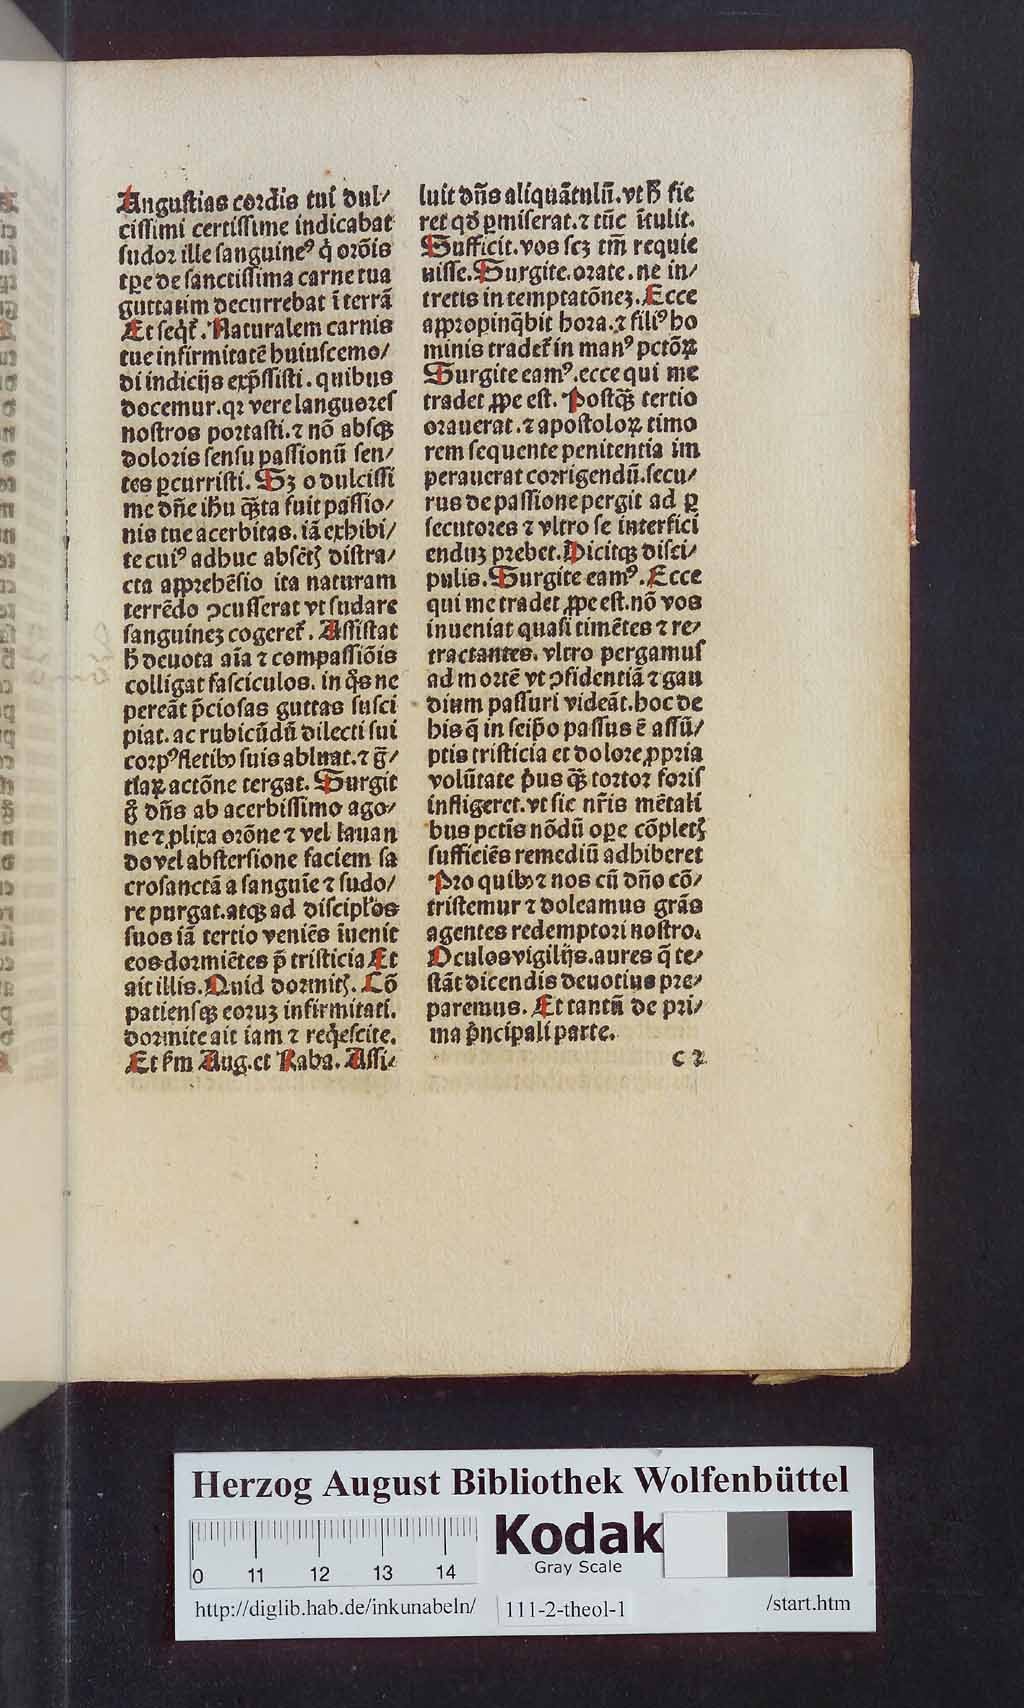 Anguſtias cordis tui dul⸗
ciſſimi certiſſime indicabat
ſudor ille ſanguineꝰ q̇ orōis
tꝑe de ſanctiſſima carne tua
guttatim decurrebat ī terrā
Et ſeqͥt̄. Naturalem carnis
tue infirmitatē huiuſcemo⸗
di indicijs exp̄ſſiſti. quibus
docemur. qꝛ vere languoreſ
noſtros portaſti. ⁊ nō abſqꝫ
doloris ſenſu paſſionū ſen⸗
tes ꝑcurriſti. Sꝫ o dulciſſi
me dn̄e ih̄u qͣꝫta fuit paſſio⸗
nis tue acerbitas. iā exhibi⸗
te cuiꝰ adhuc abſēt diſtra⸗
cta apprehēſio ita naturam
terrēdo ꝯcuſſerat vt ſudare
ſanguineꝫ cogeret̄. Aſſiſtat
h̄ deuota aīa ⁊ compaſſiōis
colligat faſciculos. in qͦs ne
pereāt p̄cioſas guttas ſuſci
piat. ac rubicūdū dilecti ſui
corpꝰ fletibꝰ ſuis abluat. ⁊ ḡ⸗
tiaꝝ actōne tergat. Surgit
g̊ dn̄s ab acerbiſſimo ago⸗
ne ⁊ ꝓlixa orōne ⁊ vel lauan
do vel abſterſione faciem ſa
croſanctā a ſanguīe ⁊ ſudo⸗
re purgat. atqꝫ ad diſcipl̓os
ſuos iā tertio veniēs īuenit
eos dormiētes p̄ triſticia Et
ait illis. Quid dormit. Cō
patienſqꝫ eoruꝫ infirmitati.
dormite ait iam ⁊ reqͥeſcite.
Et ẜm Aug. et Raba. Aſſi⸗
luit dn̄s aliquātulū. vt h̄ fie
ret qd̓ ꝑmiſerat. ⁊ tūc ītulit.
Sufficit. vos ſcꝫ tm̄ requie
uiſſe. Surgite. orate. ne in⸗
tretis in temptatōneꝫ. Ecce
appropinq̄bit hora. ⁊ filiꝰ ho
minis tradet̄ in manꝰ pctōꝝ
Surgite eamꝰ. ecce qui me
tradet ꝓpe eſt. Poſtqͣꝫ tertio
orauerat. ⁊ apoſtoloꝝ timo
rem ſequente penitentia im
perauerat corrigendū. ſecu⸗
rus de paſſione pergit ad ꝑ
ſecutores ⁊ vltro ſe interfici
enduꝫ prebet. Dicitqꝫ diſci⸗
pulis. Surgite eamꝰ. Ecce
qui me tradet ꝓpe eſt. nō vos
inueniat quaſi timētes ⁊ re⸗
tractantes. vltro pergamuſ
ad mortē vt ꝯfidentiā ⁊ gau
dium paſſuri videāt. hoc de
his q̄ in ſeip̄o paſſus ē aſſū⸗
ptis triſticia et dolore ꝓpria
volūtate pͥus qͣꝫ tortor foriſ
infligeret. vt ſic nr̄is mētali
bus pctīs nōdū oꝑe cōplet
ſufficiēs remediū adhiberet
Pro quibꝰ ⁊ nos cū dn̄o cō⸗
triſtemur ⁊ doleamus grās
agentes redemptori noſtro.
Oculos vigilijs. aures q̄ te⸗
ſtāt dicendis deuotius pre⸗
paremus. Et tantū de pri⸗
ma pͥncipali parte.
c 2
Herzog August Bibliothek Wolfenbüttel
Kodak
Gray Scale
0 11 12 13 14
http://diglib.hab.de/inkunabeln/ 111-2-theol-1 /start.htm